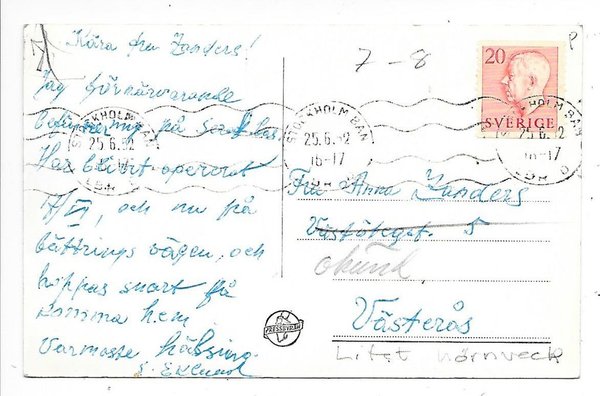 Kära fru Zanders!
Jag förnärvarande
befinner mig på
Har blivit opererat
7/VI, och nu på
bättrings vägen, och
hoppas snart få
komma hem.
Varmaste hälsing.
S. Eklund
7 - 8
20
SVERIGE
STOCKHOLM BAN
25.6.52
STOCKHOLM BAN
25.6.52
16-17
STOCKHOLM BAN
25.6.52
16-17
Fru Anna Zanders
5
okänd
Västerås
Litet hörnveck
PRESSBYRÅN